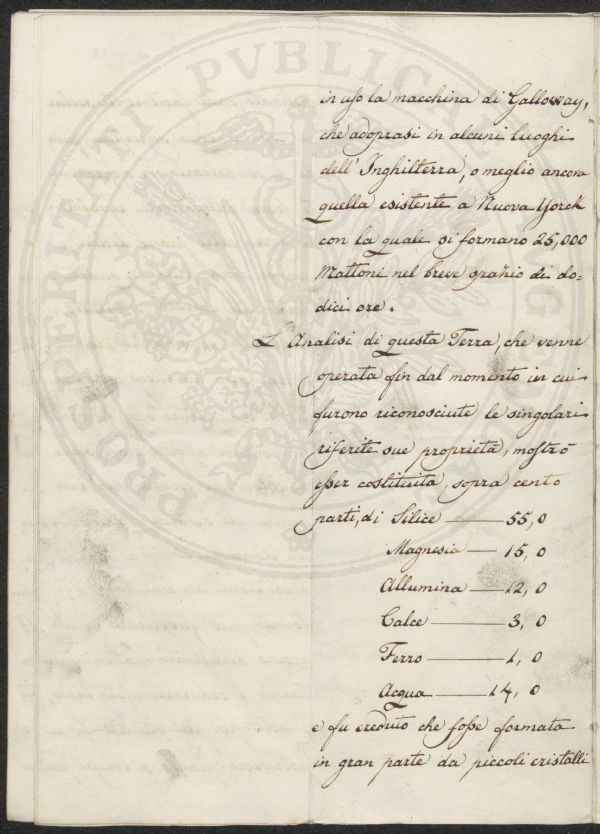 in uso la macchina di Galloway,
che adoprasi in alcuni luoghi
dell' Inghilterra, o meglio ancora
quella esistente a Nuova Yorck
con la quale si formano 25,000
Mattoni nel breve spazio di do-
dici ore.
L'Analisi di questa Terra, che venne
operata fin dal momento in cui
furono riconosciute le singolari
riferite sue proprietà, mostrò
esser costituita, sopra cento
parti, di Silice — 55,0
Magnesia — 15,0
Allumina — 12,0
Calce — 3,0
Ferro — 1,0
Acqua — 14,0
e fu creduto che fosse formata
in gran parte da piccoli cristalli
PROSPERITATI PUBLICAE